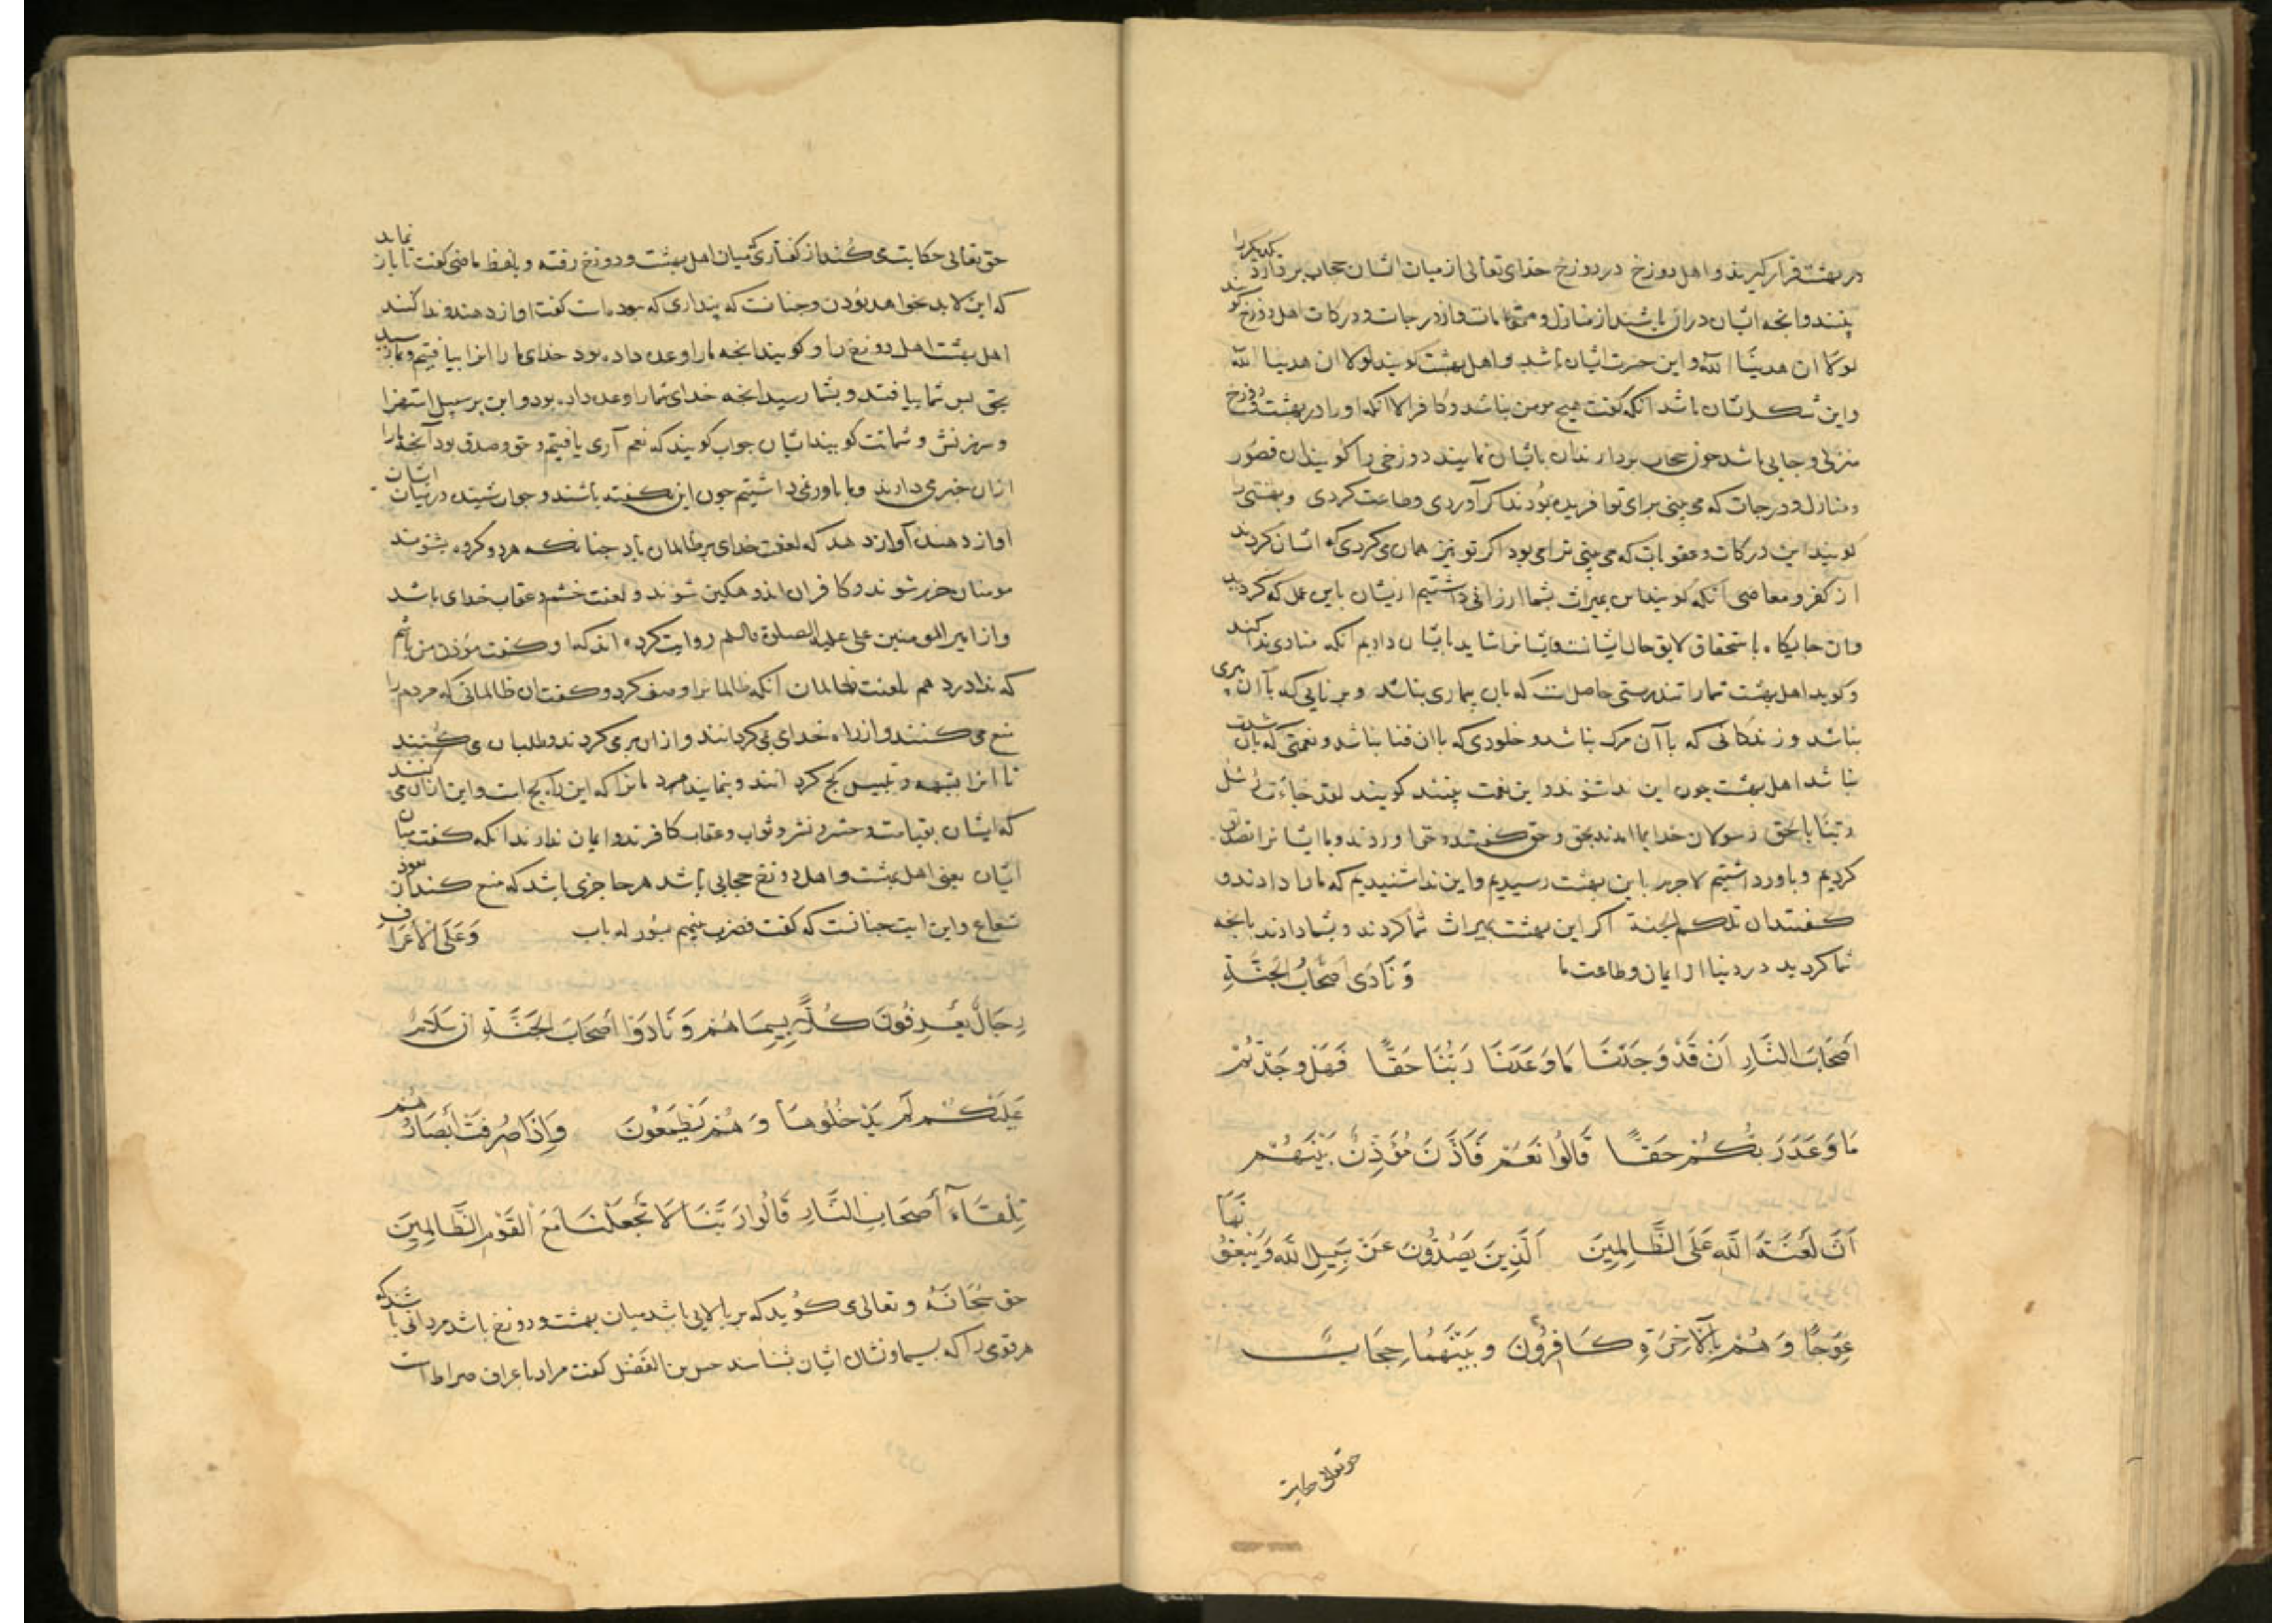 در بهشت قرار گیرند و اهل دوزخ در دوزخ خدای تعالی از میان ایشان حجاب بردارد یکدیگر را
بینند و آنچه ایشان در آن باشند از منازل و مقامات و از درجات و درکات اهل دوزخ گویند
لولا ان هدینا الله و این حسرت ایشان باشد و اهل بهشت گویند لولا ان هدینا الله
و این شکر ایشان باشد آنکه گفت هیچ مومن نباشد و کافر الا آنکه او را در بهشت و دوزخ
منزلی و جایی باشد چون حجاب بردارند آن بایشان نمایند دوزخی را گویند آن قصور
و منازل و درجات که می بینی برای تو آفریده بودند اگر آوردی و طاعت کردی و بهشتی را
گویند این درکات و عقوبات که می بینی ترا می بود اگر تو نیز همان می کردی که ایشان کردند
از کفر و معاصی آنکه گویند این بمیراث بشما ارزانی داشتیم از ایشان باین عمل که کردید
و آن جایگاه باستحقاق لایق حال ایشانست و ایشانرا شاید بایشان دادیم آنکه منادی ندا کند
و گوید اهل بهشت شما را تندرستی حاصلست که بآن بیماری نباشد و برنایی که با آن پیری
نباشد و زندگانی که با آن مرگ نباشد و خلودی که با آن فنا نباشد و نعمتی که بآن شدت
نباشد اهل بهشت چون این ندا شنوند و این نعمت بینند گویند لقد جاءت رسل
ربنا بالحق رسولان خدای ما آمدند بحق و حق گفتند و حق آوردند و ما ایشانرا تصدیق
کردیم و باور داشتیم لاجرم باین بهشت رسیدیم و این ندا شنیدیم که ما را دادند و
گفتند ان تلکم الجنة اگر این بهشت بمیراث شما کردند و بشما دادند بآنچه
شما کردید در دنیا از ایمان و طاعت ما وَنَادَى أَصْحَابُ الْجَنَّةِ
أَصْحَابَ النَّارِ أَنْ قَدْ وَجَدْنَا مَا وَعَدَنَا رَبُّنَا حَقًّا فَهَلْ وَجَدْتُمْ
مَا وَعَدَ رَبُّكُمْ حَقًّا قَالُوا نَعَمْ فَأَذَّنَ مُؤَذِّنٌ بَيْنَهُمْ
أَنْ لَعْنَةُ اللَّهِ عَلَى الظَّالِمِينَ الَّذِينَ يَصُدُّونَ عَنْ سَبِيلِ اللَّهِ وَيَبْغُونَهَا
عِوَجًا وَهُمْ بِالْآخِرَةِ كَافِرُونَ وَبَيْنَهُمَا حِجَابٌ
حق تعالی حکایت
حق تعالی حکایت می کند از گفتاری که میان اهل بهشت و دوزخ رفته و بلفظ ماضی گفت تا باز نماید
که این لابد بخواهد بودن و چنانست که پنداری که بوده است گفت آواز دهند و ندا کنند
اهل بهشت اهل دوزخ را و گویند آنچه ما را وعده داده بود خدای ما را آنرا بیافتیم و بما رسید
بحق پس شما بیافتید و بشما رسید آنچه خدای شما را وعده داده بود و این بر سبیل استهزا
و سرزنش و شماتت گویند ایشان جواب گویند که نعم آری یافتیم و حق و صدق بود آنچه ما را
از آن خبر می دادند و ما باور نمی داشتیم چون این گفته باشند و جواب شنیده در میان ایشان
آواز دهنده آواز دهد که لعنت خدای بر ظالمان باد چنانکه هر دو گروه بشنوند
مومنان خرم شوند و کافران اندوهگین شوند و لعنت خشم و عقاب خدای باشد
و از امیر المومنین علی علیه الصلوة والسلم روایت کرده اند که او گفت مؤذن من باشم
که ندا در دهم بلعنت ظالمان آنکه ظالمانرا وصف کرد و گفت آن ظالمانی که مردم را
منع می کنند و از راه خدای می گردانند و از آن بر می گردند و طلب آن می کنند
تا آنرا بشبهه و تلبیس کج گردانند و بنمایند مردمانرا که این راه کج است و این از آن می کنند
که ایشان بقیامت و حشر و نشر و ثواب و عقاب کافرند و ایمان ندارند آنکه گفت میان
ایشان یعنی اهل بهشت و اهل دوزخ حجابی باشد هر حاجزی باشد که منع کند از نفوذ
شعاع و این آیت چنانست که گفت فضرب بینهم بسور له باب وَعَلَى الْأَعْرَافِ
رِجَالٌ يَعْرِفُونَ كُلًّا بِسِيمَاهُمْ وَنَادَوْا أَصْحَابَ الْجَنَّةِ أَنْ سَلَامٌ
عَلَيْكُمْ لَمْ يَدْخُلُوهَا وَهُمْ يَطْمَعُونَ وَإِذَا صُرِفَتْ أَبْصَارُهُمْ
تِلْقَاءَ أَصْحَابِ النَّارِ قَالُوا رَبَّنَا لَا تَجْعَلْنَا مَعَ الْقَوْمِ الظَّالِمِينَ
حق سُبْحَانَهُ و تعالی می گوید که بر بالایی باشد میان بهشت و دوزخ باشد مردانی باشند که
هر قومی را که بسیما و نشان ایشان بشناسند حسن بن الفضل گفت مراد باعراف صراط است